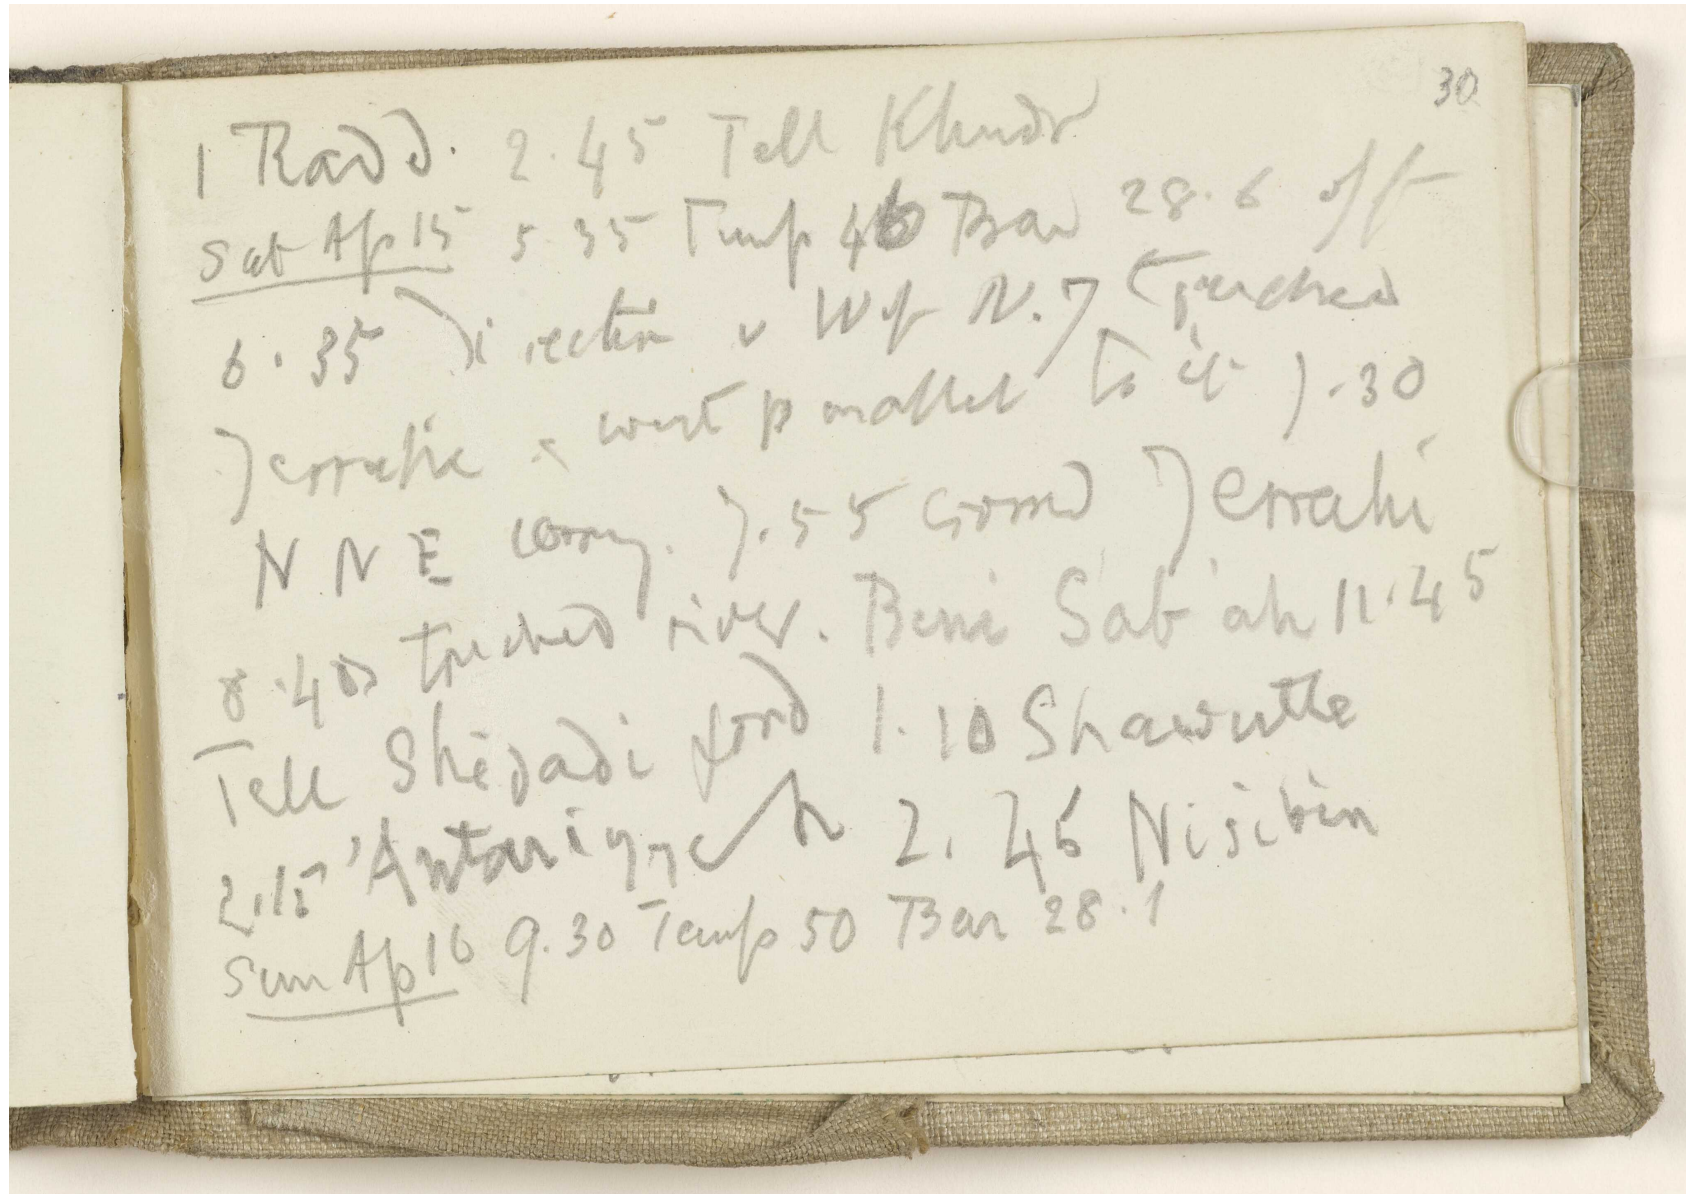 30
1 Radd. 2.45 Tell Khudr
Sat Ap 15 5.35 Temp 46 Bar 28.6 off
6.35 Direction v W of N. 7 touched
Jerrahi & went parallel to it 7.30
NNE corny. 7.55 crossed Jerrahi
8.40 touched river. Beni Sab'ah 11.45
Tell Shedadi ford 1.10 Shawutle
2.15 'Antariyyeh 2.45 Nisibin
Sun Ap 16 9.30 Temp 50 Bar 28.1